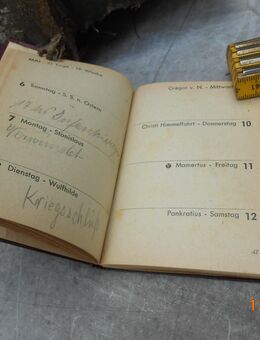 MAI
6 Samstag - S. S. n. Ostern
7 Montag - Stanislaus
Verwundet
Dienstag - Wulfhilde
Kriegsschluß
Gregor v. N. - Mittwoch
Christi Himmelfahrt - Donnerstag 10
Mamertus - Freitag 11
Pankratius - Samstag 12
47